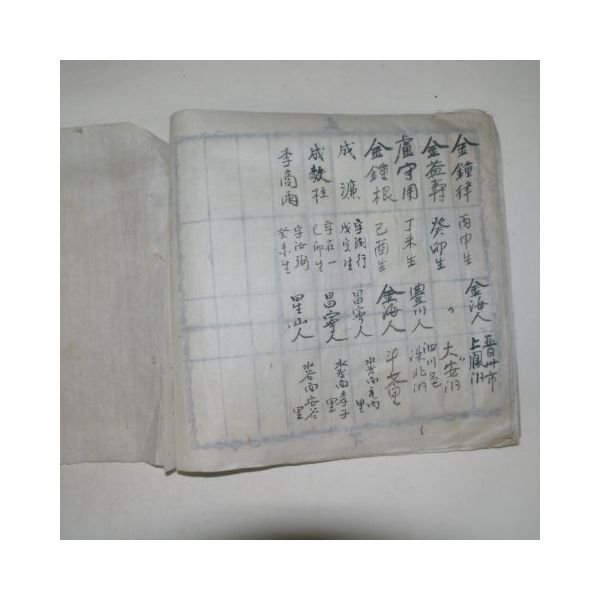 金鍾律 丙申生 金海人 晋州市上鳳洞
金益軒 癸卯生 〃 〃大安洞
盧守用 丁未生 豊川人 泗川邑洙北洞
金鍾根 己酉生 金海人 斗里
成濂 字潤行 戊寅生 昌寧人 水谷面元内里
成數柱 字在一 乙卯生 昌寧人 水谷面孝子里
李商雨 字汝弼 癸未生 星山人 水谷面安谷里